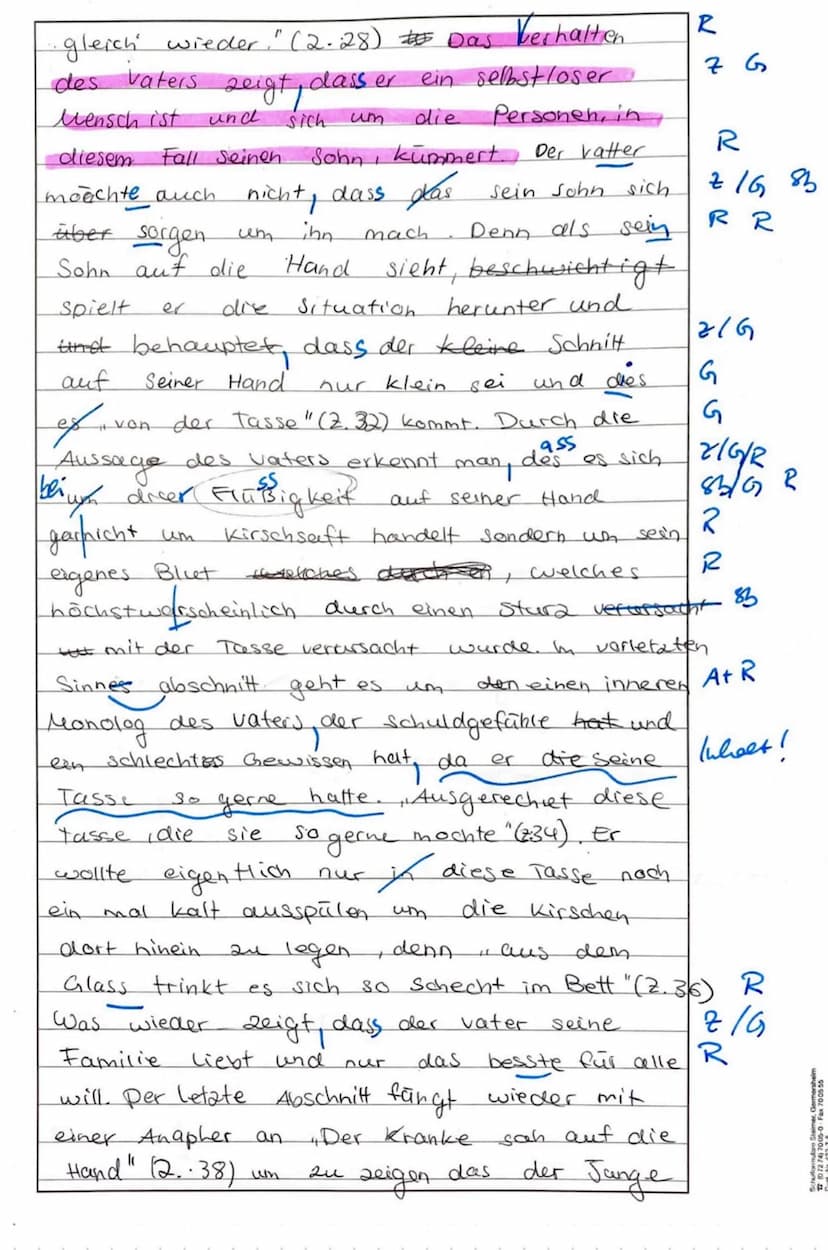 gleich wieder." (Z.28) Das Verhalten R
des Vaters zeigt, dass er ein selbstloser Z G
Mensch ist und sich um die Personen, in
diesem Fall seinen Sohn, kümmert. Der Vatter R
moöchte auch nicht, dass das sein Sohn sich Z/G Sb
über sorgen um ihn mach. Denn als sein R R
Sohn auf die Hand sieht, beschwichtigt
spielt er die Situation herunter und
und behauptet, dass der kleine Schnitt Z/G
auf seiner Hand nur klein sei und dies G
es „von der Tasse" (Z.32) kommt. Durch die G
ass
Aussage des Vaters erkennt man, des es sich Z/G/R
bei ss
um dieser Flüßigkeit auf seiner Hand Sb/G R
garnicht um Kirschsaft handelt sondern um sein R
eigenes Blut welches , welches R
höchstwarscheinlich durch einen Sturz verursacht Sb
mit der Tasse verursacht wurde. Im vorletzten
Sinnes abschnitt geht es um den einen inneren A+R
Monolog des Vaters, der schuldgefühle hat und
ein schlechtes Gewissen hat, da er die seine Inhalt!
Tasse so gerne hatte. „Ausgerechet diese
tasse, die sie so gerne mochte" (Z34). Er
wollte eigentlich nur in diese Tasse noch
ein mal kalt ausspülen um die Kirschen
dort hinein zu legen, denn „aus dem
Glass trinkt es sich so schecht im Bett" (Z.36) R
Was wieder zeigt, dass der Vater seine Z/G
Familie liebt und nur das besste für alle R
will. Der letzte Abschnitt fängt wieder mit
einer Anapher an „Der Kranke sah auf die
Hand" (Z.38) um zu zeigen das der Junge